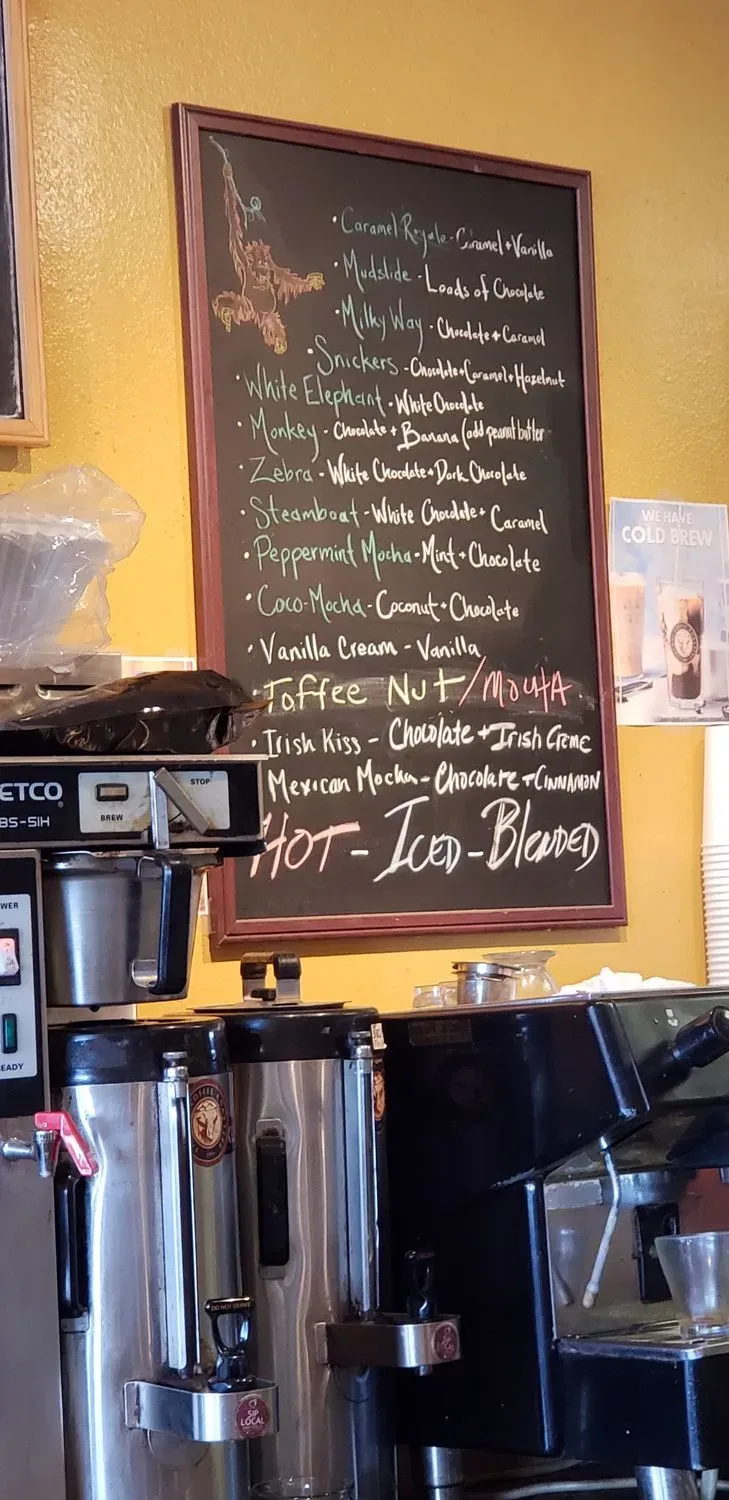 • Caramel Royale - Caramel + Vanilla
• Mudslide - Loads of Chocolate
• Milky Way - Chocolate + Caramel
• Snickers - Chocolate + Caramel + Hazelnut
• White Elephant - White Chocolate
• Monkey - Chocolate + Banana (add peanut butter
• Zebra - White Chocolate + Dark Chocolate
• Steamboat - White Chocolate + Caramel
• Peppermint Mocha - Mint + Chocolate
• Coco-Mocha - Coconut + Chocolate
• Vanilla Cream - Vanilla
• Toffee Nut / Mocha
• Irish Kiss - Chocolate + Irish Creme
Mexican Mocha - Chocolate + Cinnamon
HOT - Iced - Blended
WE HAVE
COLD BREW
ETCO®
BS-51H
BREW
STOP
WER
EADY
DO NOT
SIP
LOCAL